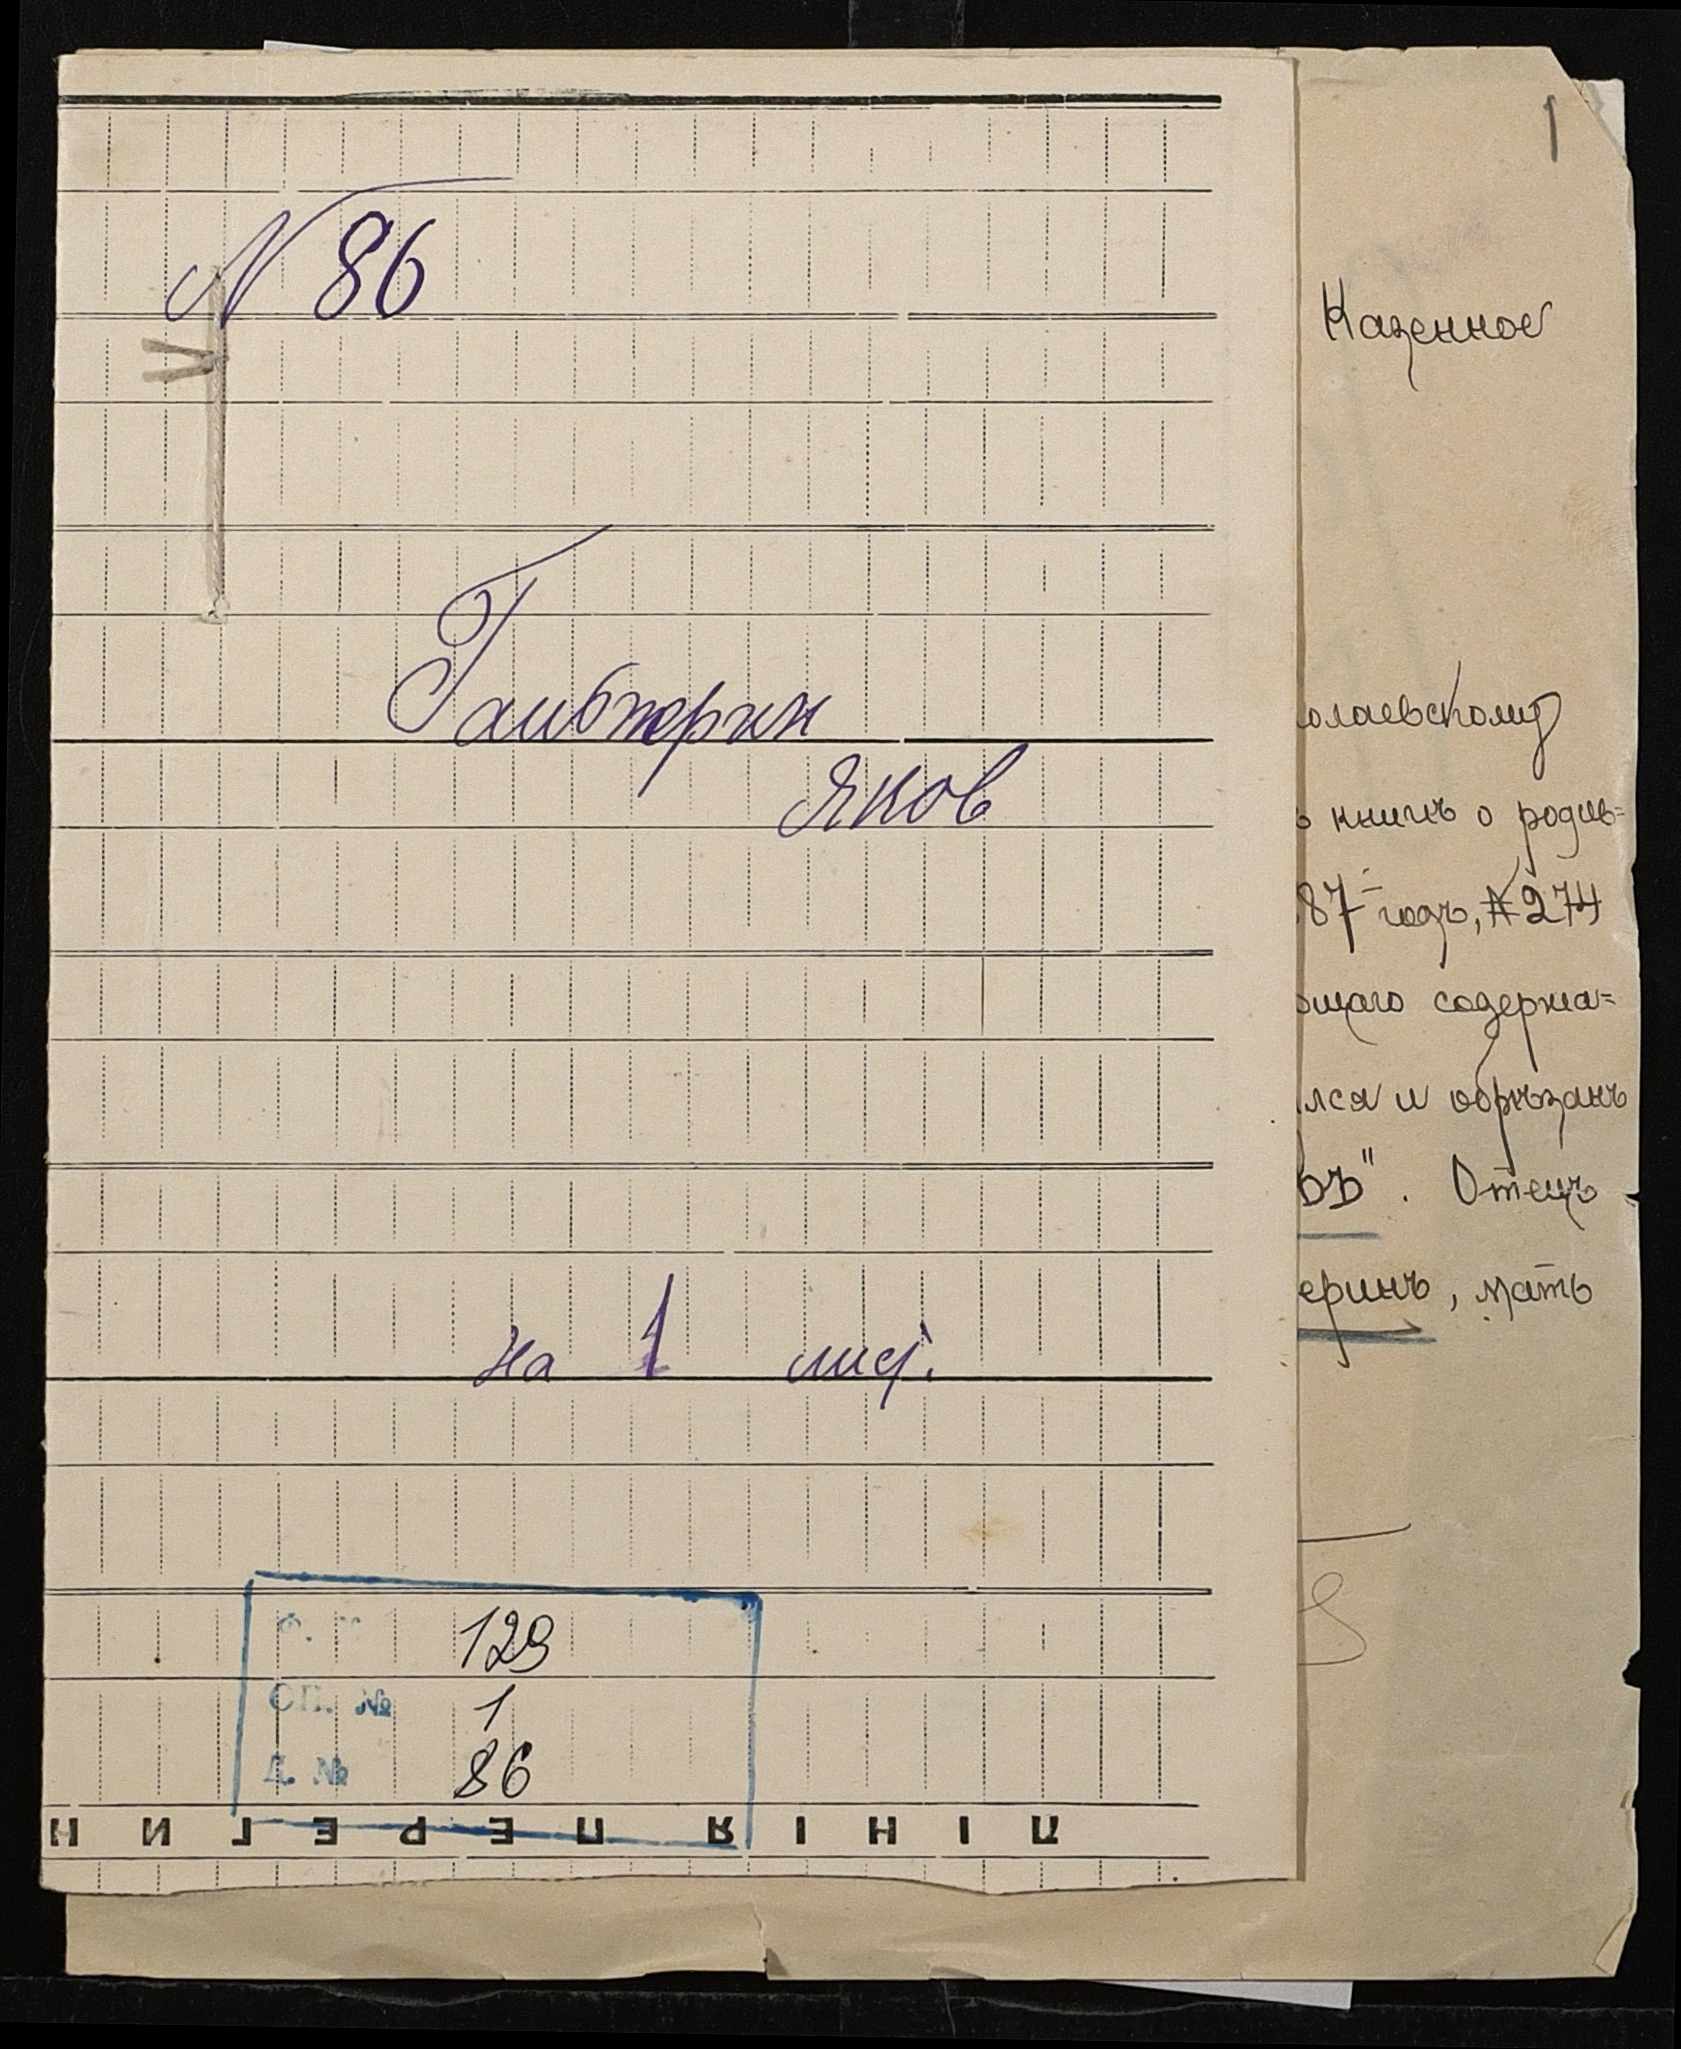 1
N 86
Казенное
Гальперин
Яков
олаевскому
ъ книгѣ о родив=
87 годъ, № 274
ющаго содержа=
лся и обрѣзанъ
въ". Отецъ
еринъ, мать
на 1 лис.
129
Оп. № 1
Д. № 86
Н И Г Е Р Е П Я І Н І Л